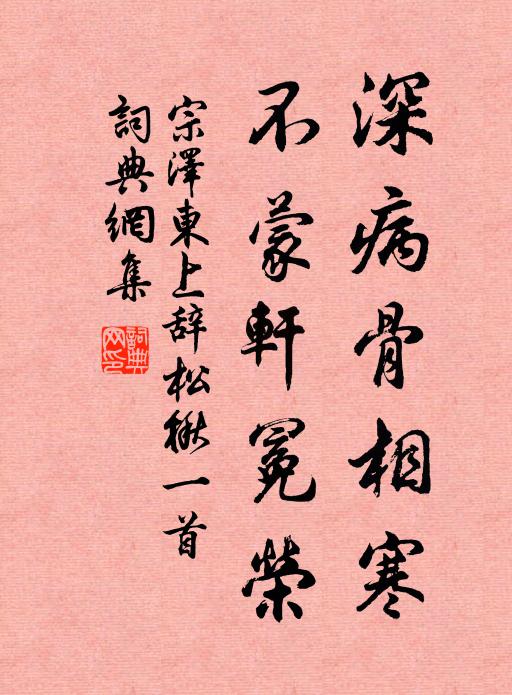 深病骨相寒
不蒙軒冕榮
宗澤東上辞松楸一首
詞典網集
詞典网印